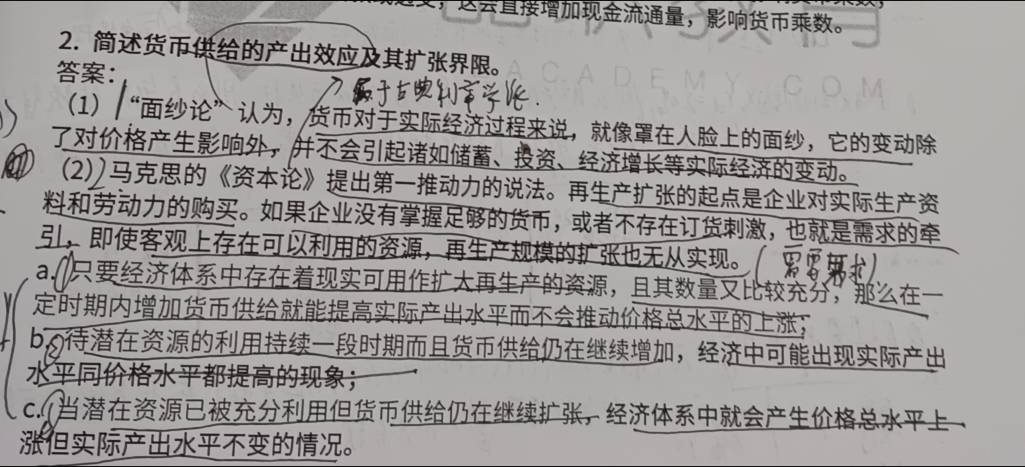 这会直接增加现金流通量，影响货币乘数。
ACADEMY.COM
2. 简述货币供给的产出效应及其扩张界限。
答案：
属于古典利率学派.
（1）“面纱论”认为，货币对于实际经济过程来说，就像罩在人脸上的面纱，它的变动除
了对价格产生影响外，并不会引起诸如储蓄、投资、经济增长等实际经济的变动。
（2）马克思的《资本论》提出第一推动力的说法。再生产扩张的起点是企业对实际生产资
料和劳动力的购买。如果企业没有掌握足够的货币，或者不存在订货刺激，也就是需求的牵
引，即使客观上存在可以利用的资源，再生产规模的扩张也无从实现。（需要需求）
a. ①只要经济体系中存在着现实可用作扩大再生产的资源，且其数量又比较充分，那么在一
定时期内增加货币供给就能提高实际产出水平而不会推动价格总水平的上涨；
b. ②待潜在资源的利用持续一段时期而且货币供给仍在继续增加，经济中可能出现实际产出
水平同价格水平都提高的现象；
c. 当潜在资源已被充分利用但货币供给仍在继续扩张，经济体系中就会产生价格总水平上
涨但实际产出水平不变的情况。